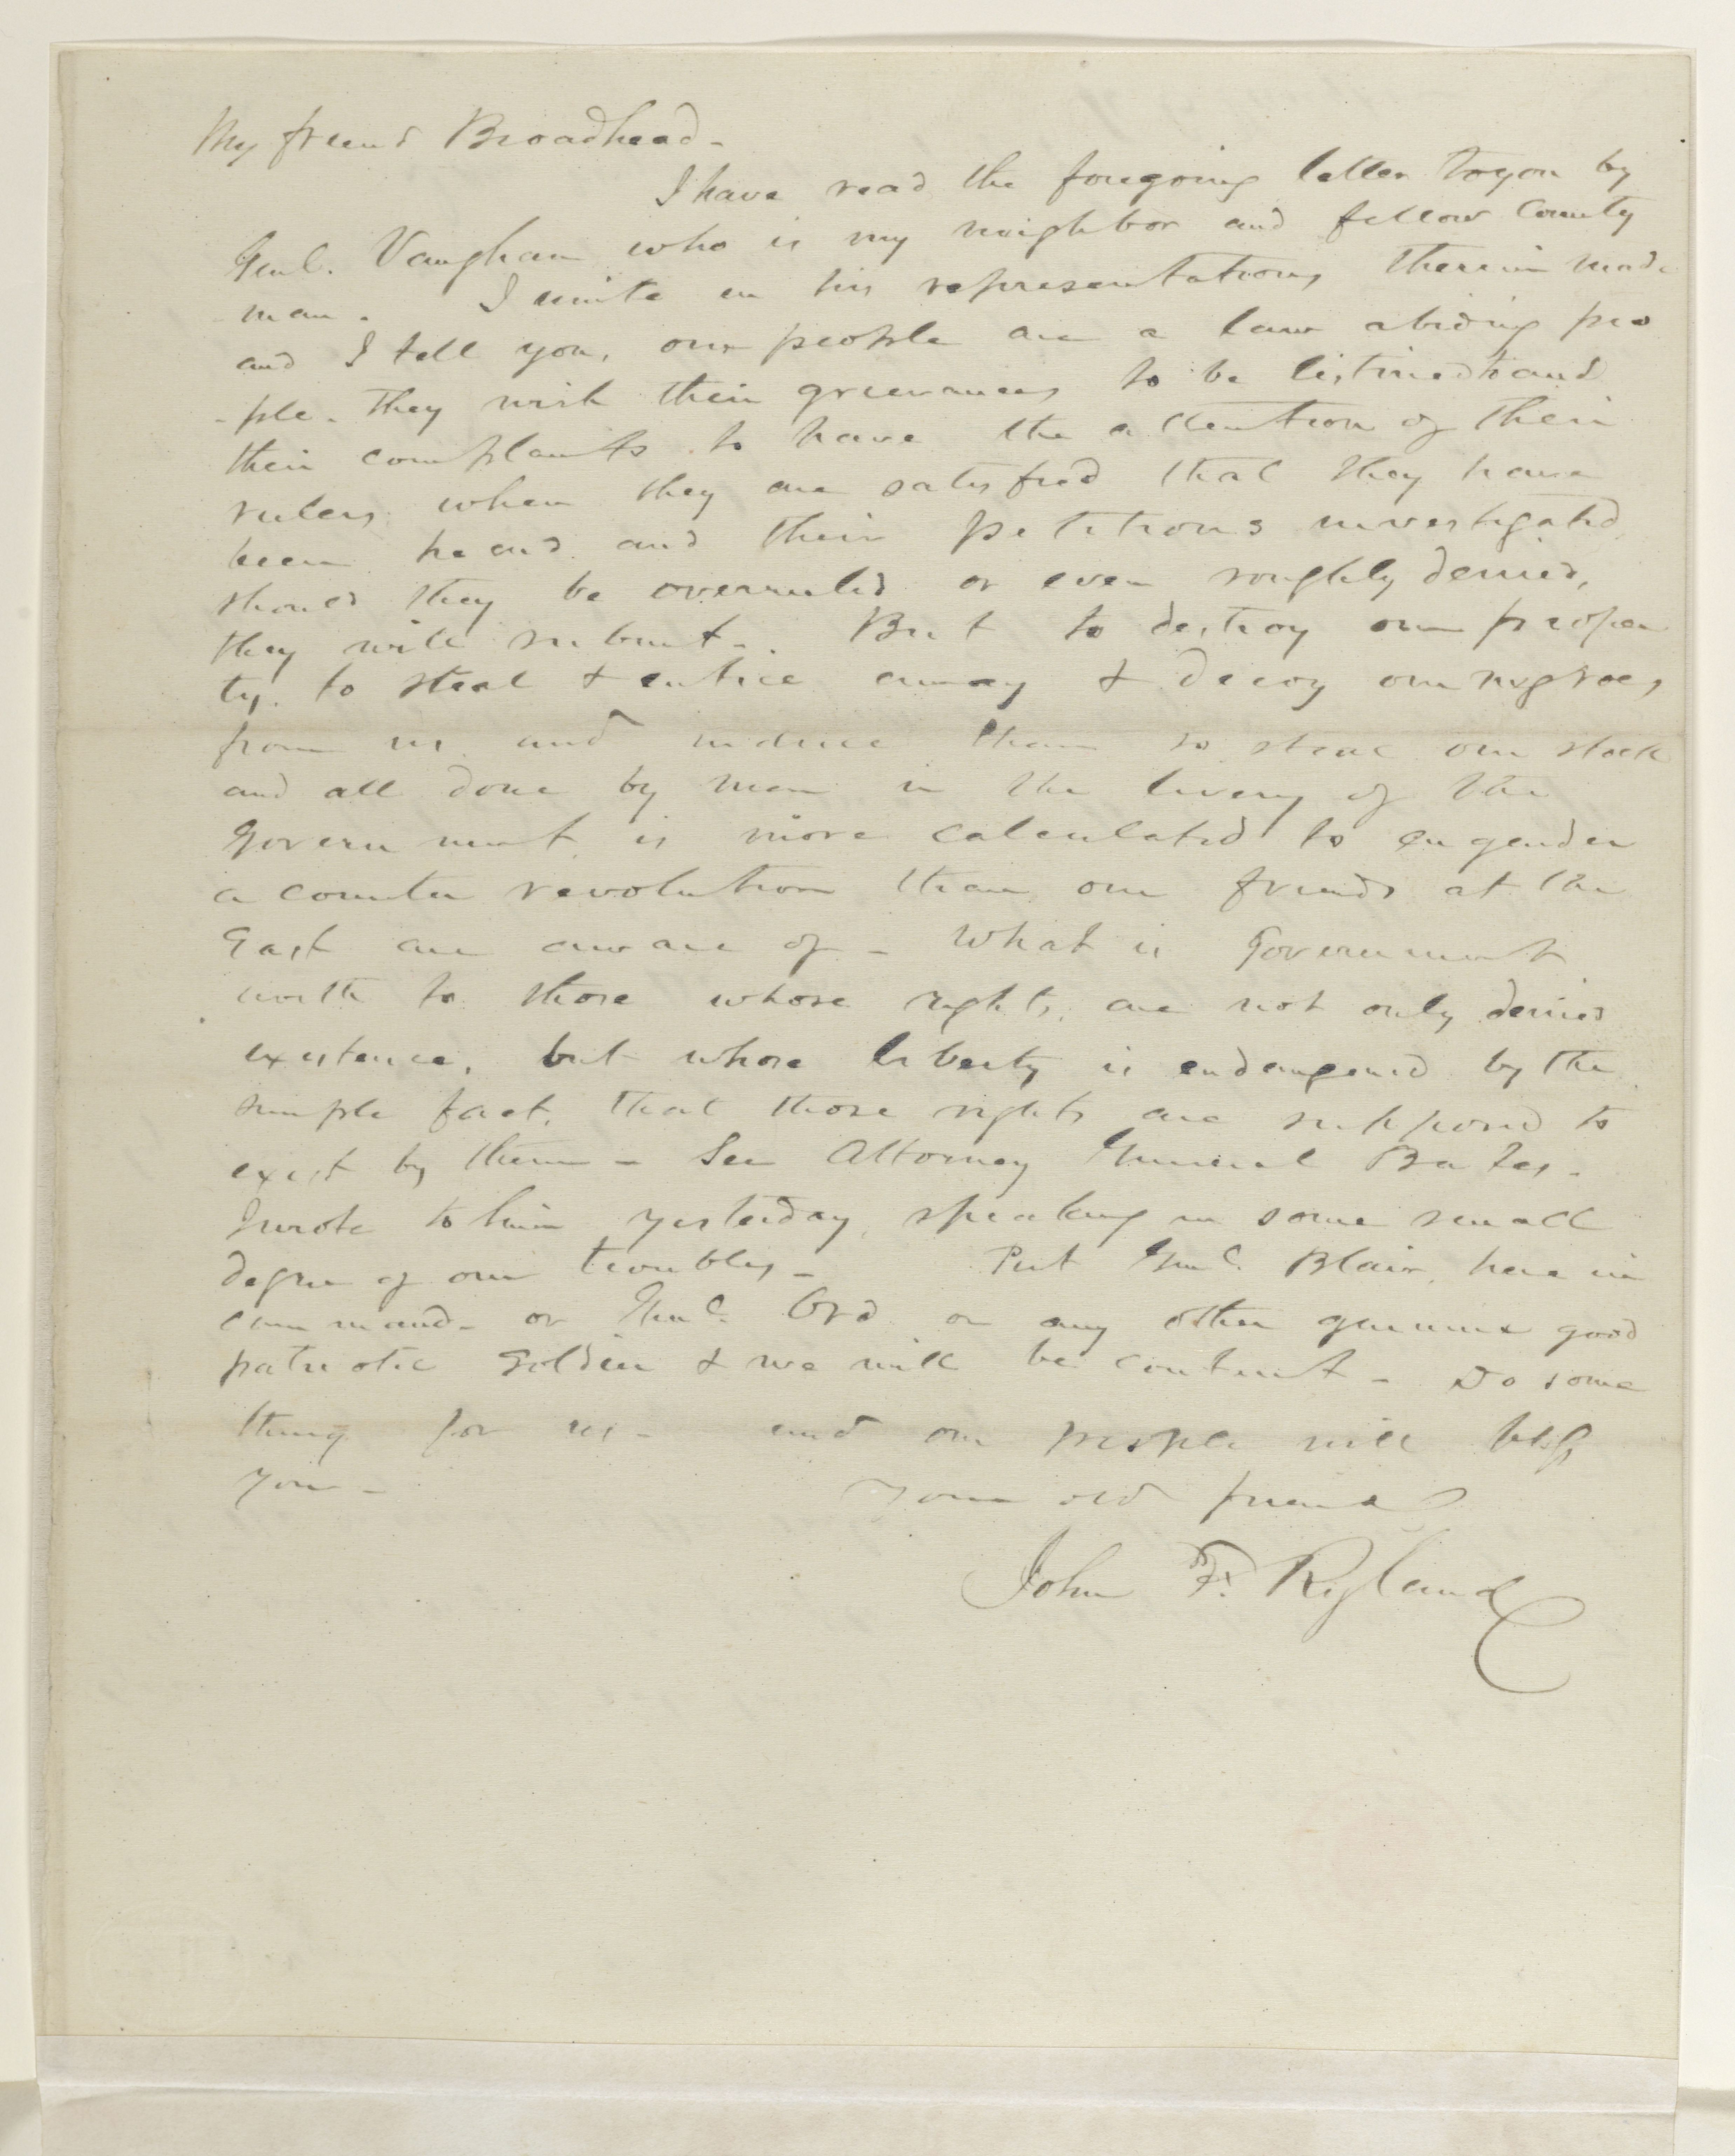 My friend Broadhead -
I have read the foregoing letter to you by
Genl. Vaughan who is my neighbor and fellow County
man. I unite in his representations therein made
and I tell you, our people are a law abiding peo
-ple. They wish their grievances to be listined to and
their complaints to have the attention of their
rulers when they are satisfied that they have
been heard and their petitions investigated
should they be overruled or even roughly denied,
they will submit -. But to destroy our proper
ty. to steal & entice away & decoy our negroes
from us and induce them to steal our stock
and all done by men in the livery of the
Government is more calculated to engender
a counter revolution than our friends at the
East are aware of - What is Government
worth to those whose rights, are not only denied
existence, but whose liberty is endangered by the
simple fact, that those rights are supposed to
exist by them - See Attorney General Bates -
I wrote to him yesterday, speaking in some small
degree of our troubles - Put Genl. Blair here in
command - or Genl. Ord or any other genuine good
patriotic Soldier & we will be content - Do some
thing for us - and our people will bless
you -
Your old friend
John F. Ryland